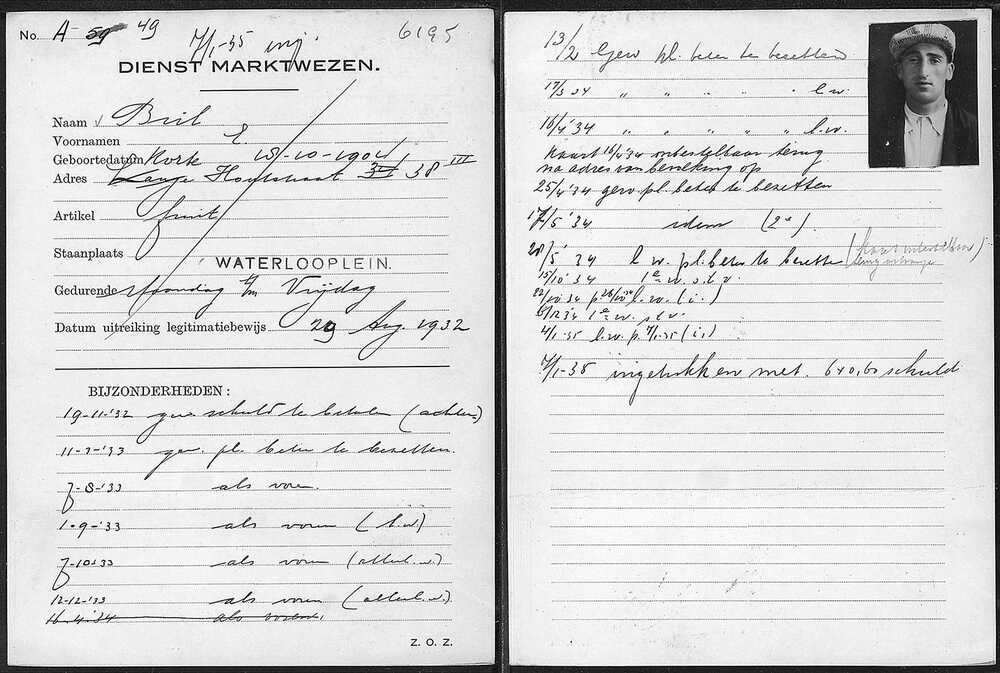 No. A 59 49 7/1-35 ing. 6195
DIENST MARKTWEZEN.
Naam Bril
Voornamen E.
Geboortedatum 15-10-1904
Adres Lange Houtstraat 34 38 III
Artikel fruit
Staanplaats
WATERLOOPLEIN.
Gedurende Maandag t/m Vrijdag
Datum uitreiking legitimatiebewijs 29 Aug. 1932
BIJZONDERHEDEN:
19-11-'32 gew. schuld te betalen (achter.)
11-7-'33 gew. pl. beter te bezetten.
7-8-'33 als voren.
1-9-'33 als voren (l.w.)
7-10-33 als voren (allerl.w.)
12-12-'33 als voren (allerl.w.)
16-4-'34 als voren.
Z. O. Z.
13/2 Gew pl. beter te bezetten
17/3 34 " " " " " l.w.
16/4 '34 " " " " " l.w.
Kaart 16/4 '34 onbestelbaar terug
na adres van bereking op
25/4 '34 gew pl. beter te bezetten
17/5 '34 idem (2e)
28/5 '34 l. w. pl. beter te bezetten (kaart onbestelbaar
terug ontvangen)
15/10 '34 1e w. s.t.v.
22/10 34 p 26/10 34 l.w. (i.)
6/12 34 1e w. s.t.v.
4/1-35 l.w. p. 7/1-35 (i.)
7/1-35 ingetrokken met. 640,60 schuld